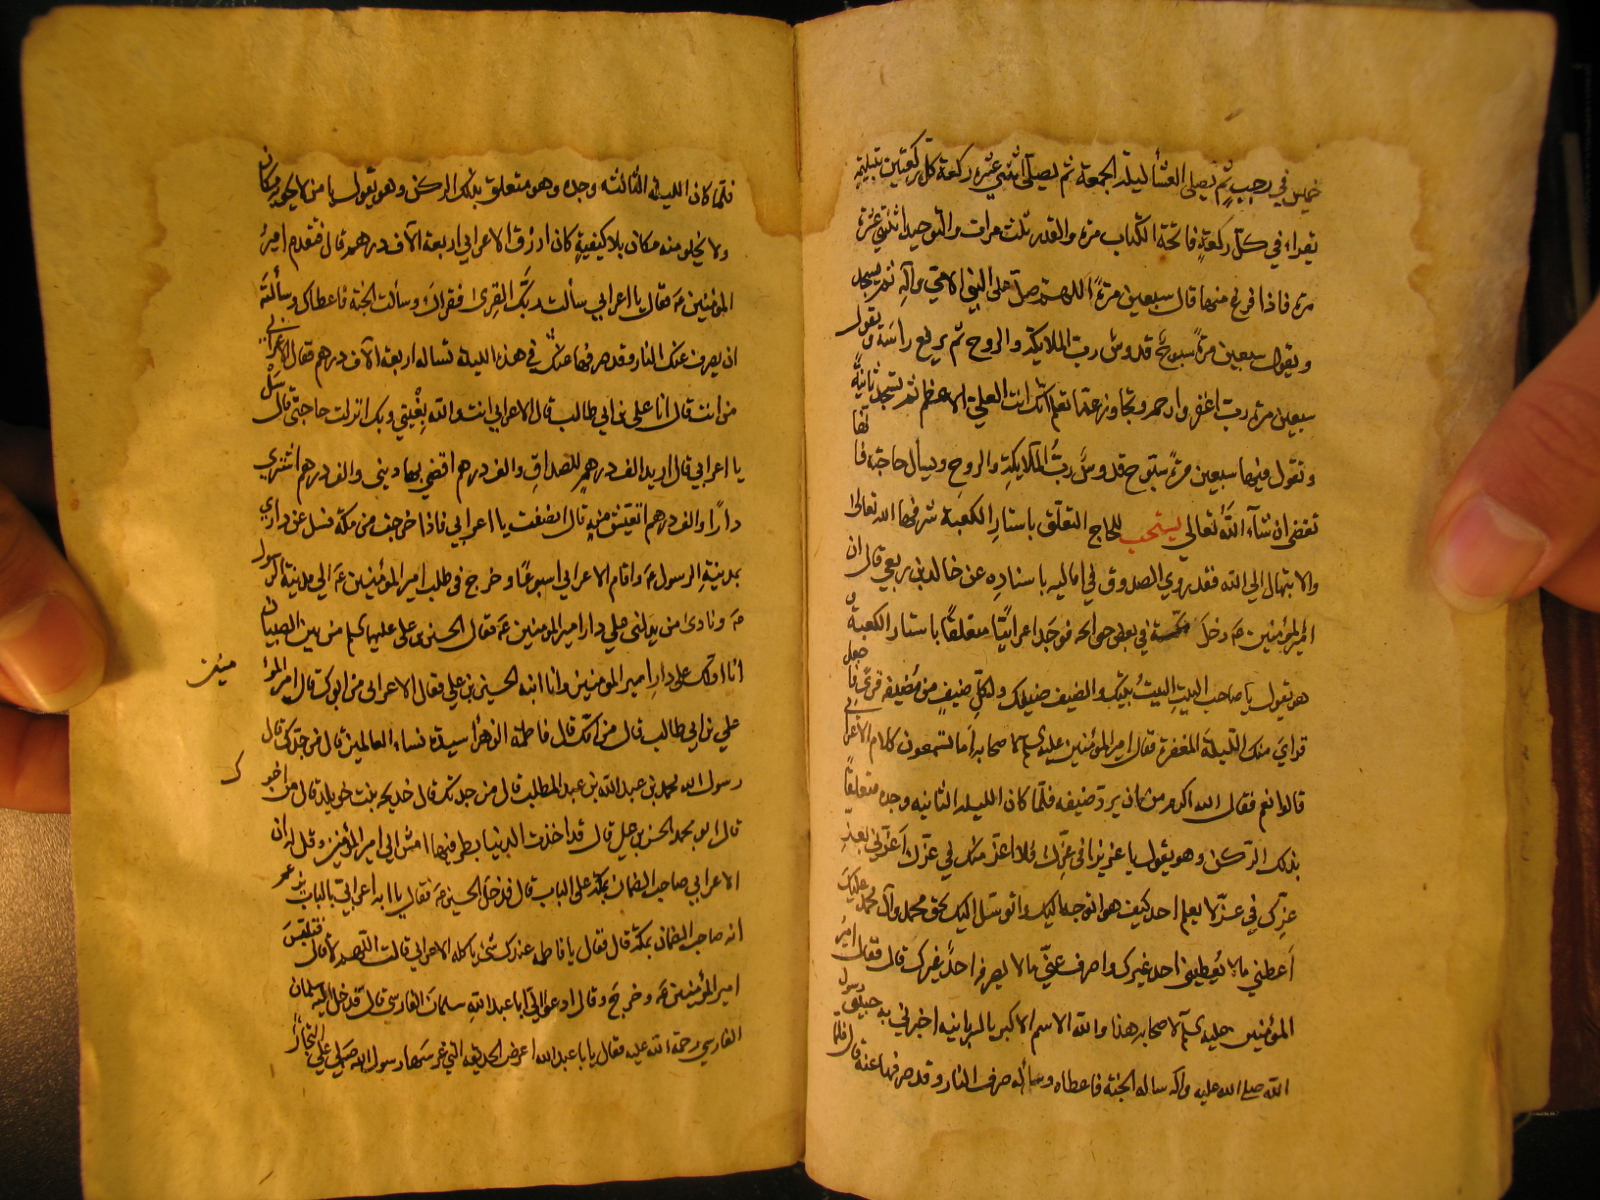 خميس في رجب ثم يصلى العشآ ليلة الجمعة ثم يصلى اثنتي عشره ركعة كل ركعتين بتسليمة
يقراء في كلّ ركعةٍ فاتحة الكتاب مرة والقدر ثلث مرات والتوحيد اثنتي عشرة
مرة فاذا فرغ منها قال سبعين مرةً اللهم صل على النبي الامّي وآله ثم يسجد
ويقول سبعين مرةً سبوحٌ قدوسٌ رب الملايكة والروح ثم يرفع راسَه ويقول
سبعين مرة رب اغفر وارحم وتجاوز عما تعلم انّك انت العلي الاعظم ثم يسجد ثانيةً
وتقول فيها سبعين مرةً سبّوح قدوسٌ ربُّ الملايكةِ والروحِ ويسأل حاجته فانها
تقضى ان شآء اللّه تعالى يستحب للحاج التعلّق باستارِ الكعبة شرفها الله تعالى
والابتهال الي الله فقد روي الصدوق في اماليه باسناده عن خالد بن ربعي قال ان
امير المؤمنين عه دخل مكّة في بعض حوائجه فوجد اعرابيًّا متعلقًا باستار الكعبة و
هو يقول يا صاحب البيتِ البيتُ بيتك والضيف ضيفك ولكلّ ضيفٍ من مُضيفه قرىً فاجعل
قرايَ منك الليلة المغفرة فقال امير المؤمنين عليه السلم لاصحابه أما تسمعون كلام الاعرابي
قالوا نعم فقال الله اكرم من ان يردّ ضيفه فلمّا كان الليلة الثانيه وجده متعلقًا
بذلك الركن وهو يقول يا عزيزا في عزِّك فلا اعزّ منك في عزك اَعزّني بعزِّ
عزِّك في عزٍّ لا يعلم احد كيف هو اتوجه اليك واتوسّل اليك بحق محمد وآل محمد عليكَ
اَعطني ما لا يُعطيني احد غيرك واصرف عنّي ما لا يصرفه احدٌ غيرك قال فقال امير
المؤمنين عليه السلم لاصحابه هذا والله الاسم الاكبر بالسريانيه اخبرني به حبيبي رسول
الله صلي الله عليه واله ساله الجنة فاعطاه وسأله صرف النار وقد صرفها عنه قال فلمّا
فلمّا كان الليلة الثالثه وجده وهو متعلق بذلك الركن وهو يقول يا من لا يحويه مكان
ولا يخلو منه مكان بلا كيفيةٍ كان ارزق الاعرابي اربعة الآف درهم قال فتقدم امير
المؤمنين عه فقال يا اعرابي سألت ربَّك القِرىٰ فقراكَ وسألت الجنة فاعطاك وسألتَه
ان يصرف عنك النار وقد صرفها عنك في هذه الليلة تساله اربعة الآف درهم فقال الاعرابي
من انت قال انا علي بن ابي طالب قال الاعرابي انت والله بِغْيتي وبك انزلت حاجتي قال سَلْ
يا اعرابي قال اريد الف درهمٍ للصداق والف درهم اقضي بها ديني والف درهم اشتري
دارًا والف درهم اتعيّش منه قال انصفت يا اعرابي فاذا خرجت من مكة فسل عن داري
بمدينةِ الرسول عه واقام الاعرابي اسبوعًا وخرج في طلب امير المؤمنين عه الي مدينة الرسول
عه ونادى من يدلني علي دار امير المؤمنين عه فقال الحسين بن علي عليهما السلم من بين الصبيان
انا ادلّك على دارِ امير المؤمنين وانا ابنه الحسين بن علي فقال الاعرابي من ابوك قال امير المؤ
منين
علي بن ابي طالب قال من امّك قال فاطمة الزهرا سيدة نساء العالمين قال من جدّك قال
رسول الله محمد بن عبد اللّه بن عبد المطلب قال من جدتك قال خديجه بنت خويلد قال من اخو
ك
قال ابو محمد الحسن بن علي قال قد اخذت الدنيا بطرفيها امش الي امير المؤمنين وقل له ان
الاعرابي صاحب الضمان بمكة على الباب قال فدخل الحسين عه فقال يا ابه اعرابيّ بالباب يزعم
انه صاحب الضمان بمكة قال فقال يا فاطمه عندك شيٌ ياكله الاعرابي قالت اللّهم لا قال فتلبّسَ
امير المؤمنين عه وخرجَ وقال ادعوا لي ابا عبد اللهِ سلمان الفارسي قال فدخل اليه سلمان
الفارسي رحمة الله عليه فقال يا با عبد الله اعرض الحديقه التي غرسَها رسول الله صلي علي التجار